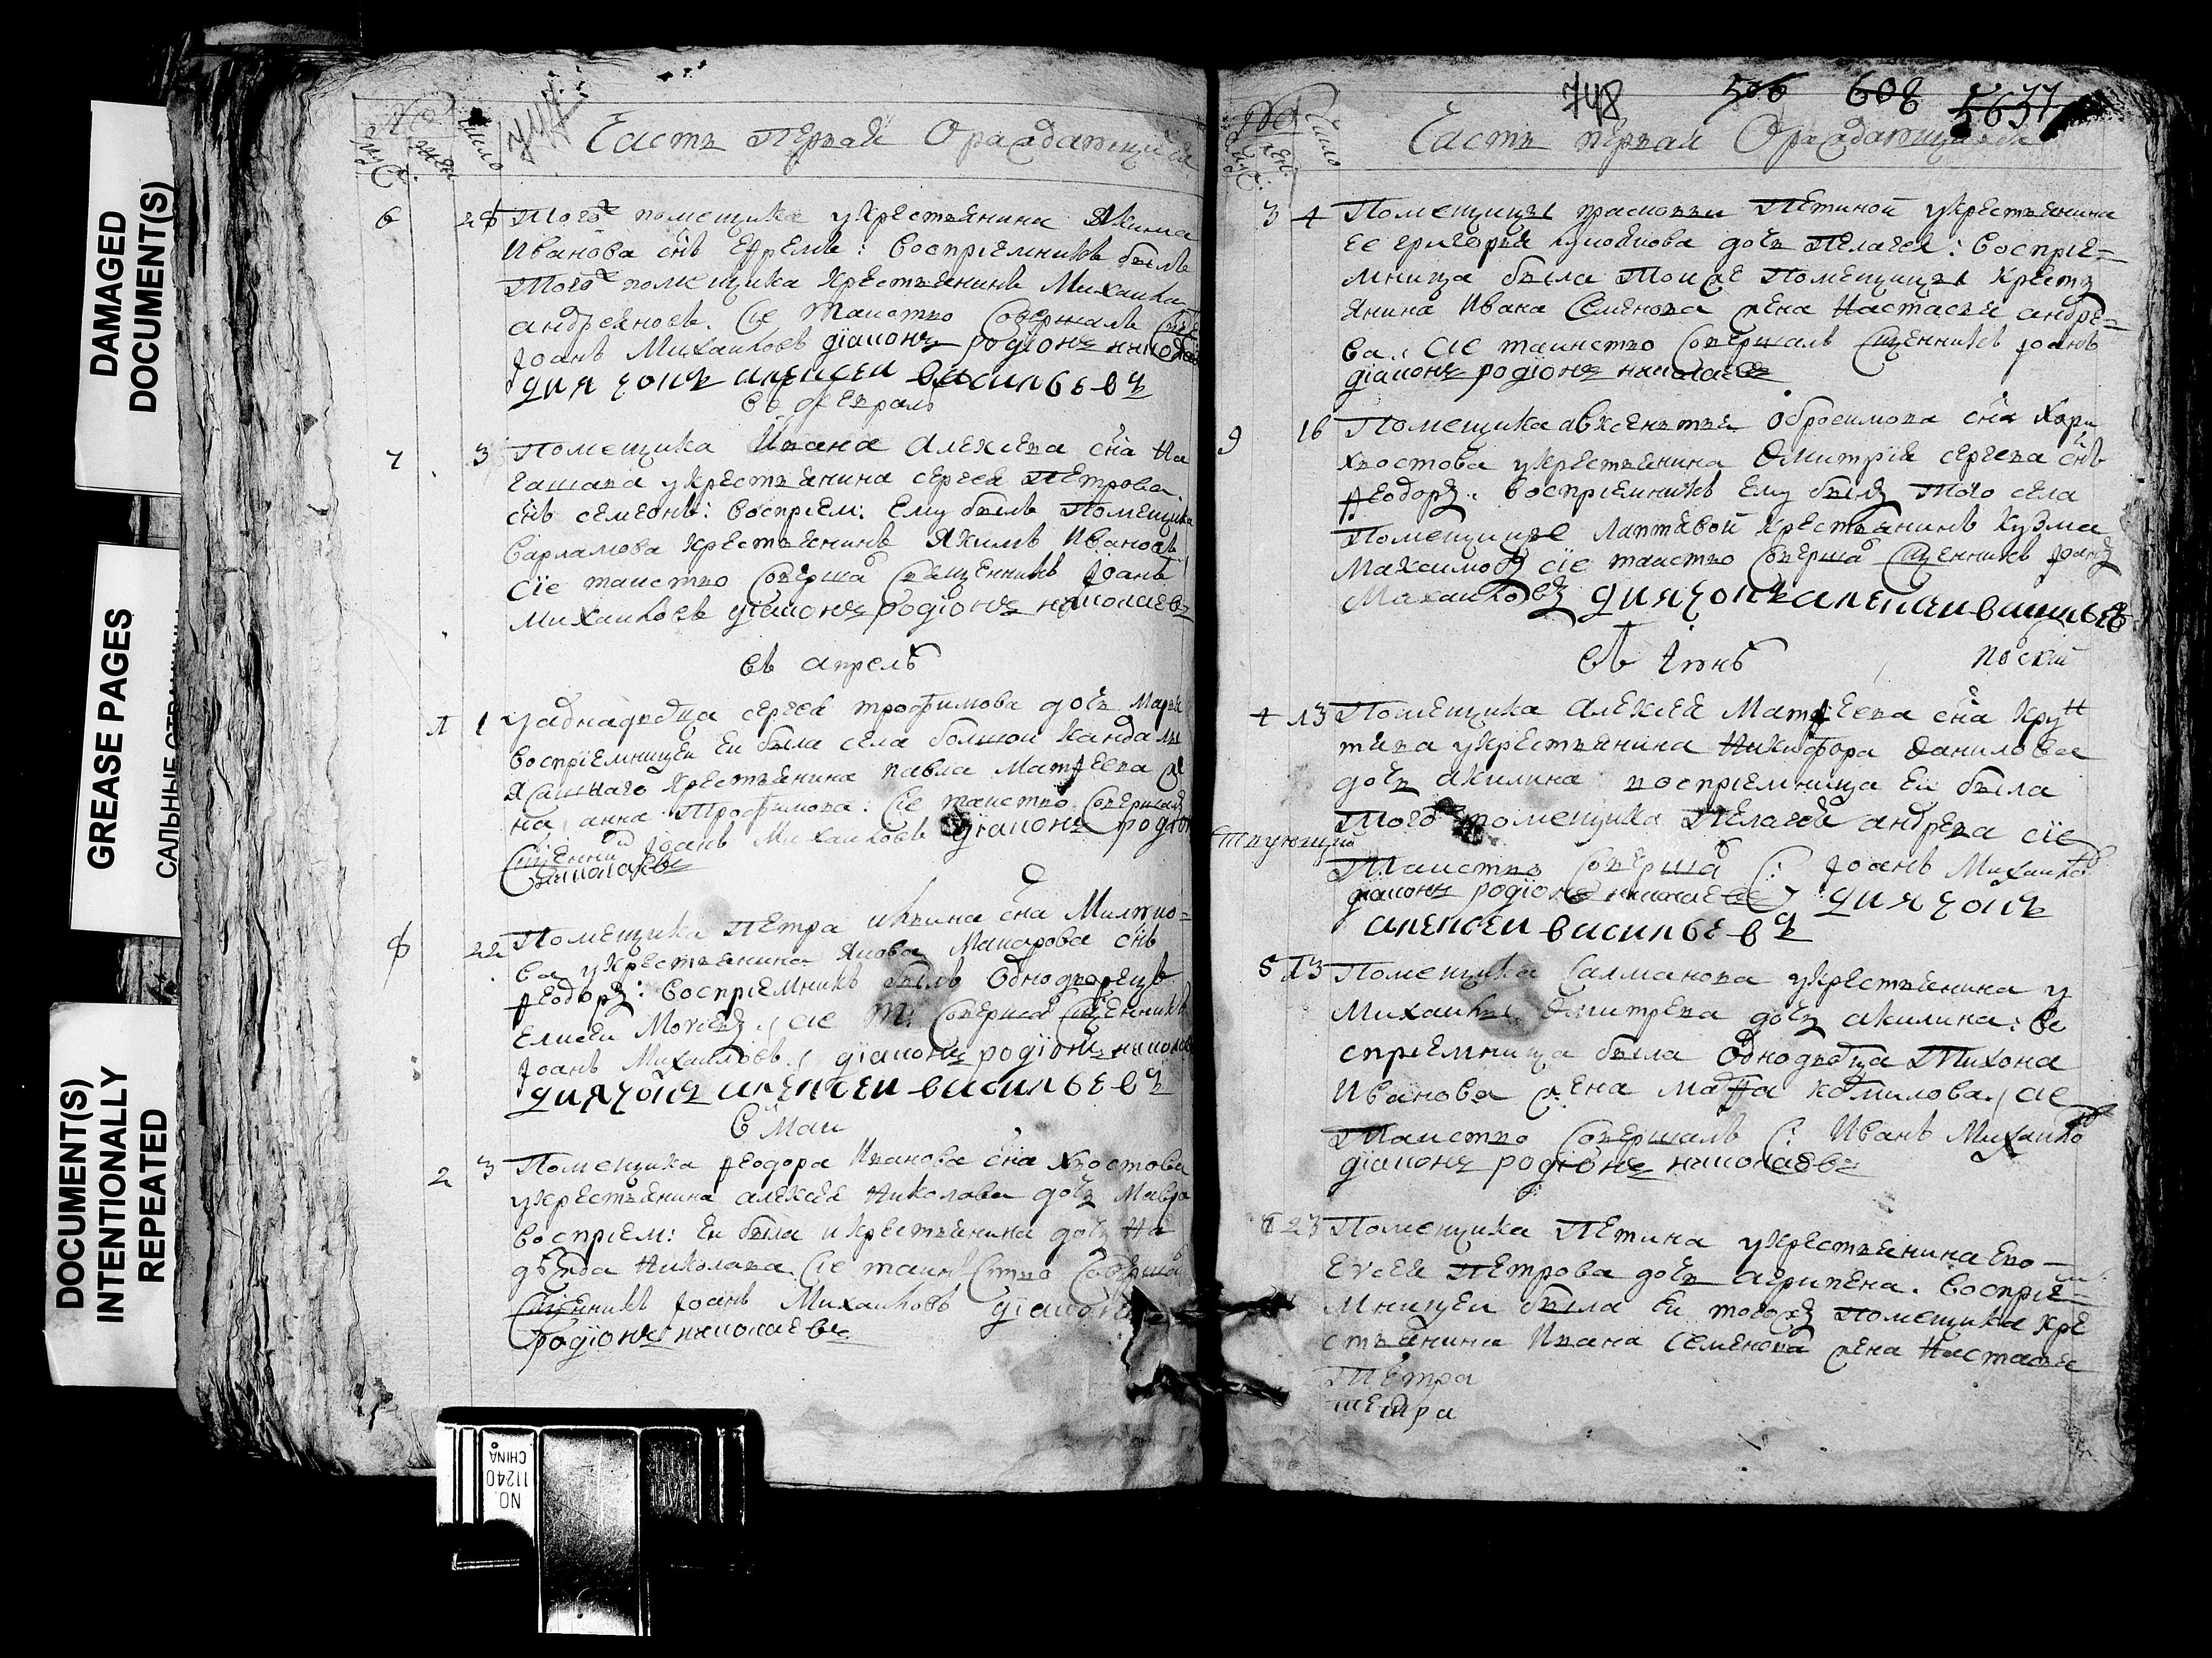 DAMAGED
DOCUMENT(S)
GREASE PAGES
DOCUMENT(S)
INTENTIONALLY
REPEATED
NO.
11240
CHINA
Часть первая О раждающихся
6 28 Тогож помещика у крестьянина Якима
Иванова снъ Ефремъ: воспрiемникъ былъ
Тогож помещика крестьянинъ Михаила
андреяновъ. Сiе таиство Совершалъ
Iоанъ Михаиловъ дiаконъ родiонъ
диячокъ алексеи васильевъ
въ февралѣ
7 3 Помещика Ивана Алексеева сна На
гашава у крестьянина сергея Петрова
снъ семеонъ: воспрiем: ему былъ Помещика
Варламова крестьянинъ Якимъ Ивановъ
Сiе таиство Соверша Священникъ Iоанъ
Михаиловъ дiаконъ родiонъ николаевъ
въ апрелѣ
1 1 У аднадвоца сергея трофимова дочь Марья
воспрiемницеи еи была села болшои Кандалы
Ясашнаго крестьянина павла Матѳеева же
на анна Трофимова: Сiе таиство Совершалъ
Священни Iоанъ Михаиловъ дiаконъ родiон
николаевъ
8 22 Помещика Петра ильина сна
ва у крестьянина Якова Макарова снъ
Ѳеодоръ: воспрiемникъ былъ Однодворецъ
Елисеи сiе т: Соверша Священникъ
Iоанъ Михаиловъ дiаконъ родiонъ николаев
диячокъ алексеи васильевъ
В Маи
2 3 Помещика Ѳеодора Иванова сна Хвостова
у крестьянина алексея Николаева дочь Мавра
воспрiем: еи была и крестьянина дочь На
Николаева Сiе таинство Соверша
Священникъ Iоанъ Михаиловъ дiаконъ
родiонъ николаевъ
748 506 608
Часть первая О раждающихся
3 4 Помещицы прасковьи Петиной у крестьянина
ее григорья дочь Пелагея: воспрiе=
мница была Тоиже Помещицы крестъ
янина Ивана Семенова жена Настасья андре=
ва. Сiе таинство Совершалъ Священникъ Iоанъ
дiаконъ родiонъ николаевъ
9 16 Помещика авксентья Обросимова сна Кари
хвостова у крестьянина Дмитрiя сергева снъ
Ѳеодоръ. воспрiемникъ ему былъ Того села
Помещицы Лаптевой крестьянинъ Кузма
Максимовъ сiе таиство Соверша Священникъ Iоанъ
Михаиловъ диячокъ алексеи васильевъ
въ Iюнѣ
4 13 Помещика Алексея Матѳеева сна
у крестьянина Никифора Данилова
дочь акилина воспрiемница еи была
Тогож помещика Пелагея андрева сiе
Таиство Соверша С: Iоанъ Михаило
дiаконъ родiонъ николаевъ диячокъ
алексеи васильевъ
5 13 Помещика Салманова у крестьянина у
Михаилы Дмитрева дочь акилина: во
спрiемница была Однодвоца Тихона
Иванова жена сiе
Таиство Совершалъ С: Иванъ Михаило
дiаконъ родiонъ николаевъ
6 23 Помещика Петина у крестьянина ево
Евсея Петрова дочь агрипена. Воспрiе=
мницеи была еи тогожъ помещика кре
стьянина Ивана Семенова жена Настасья
Петра